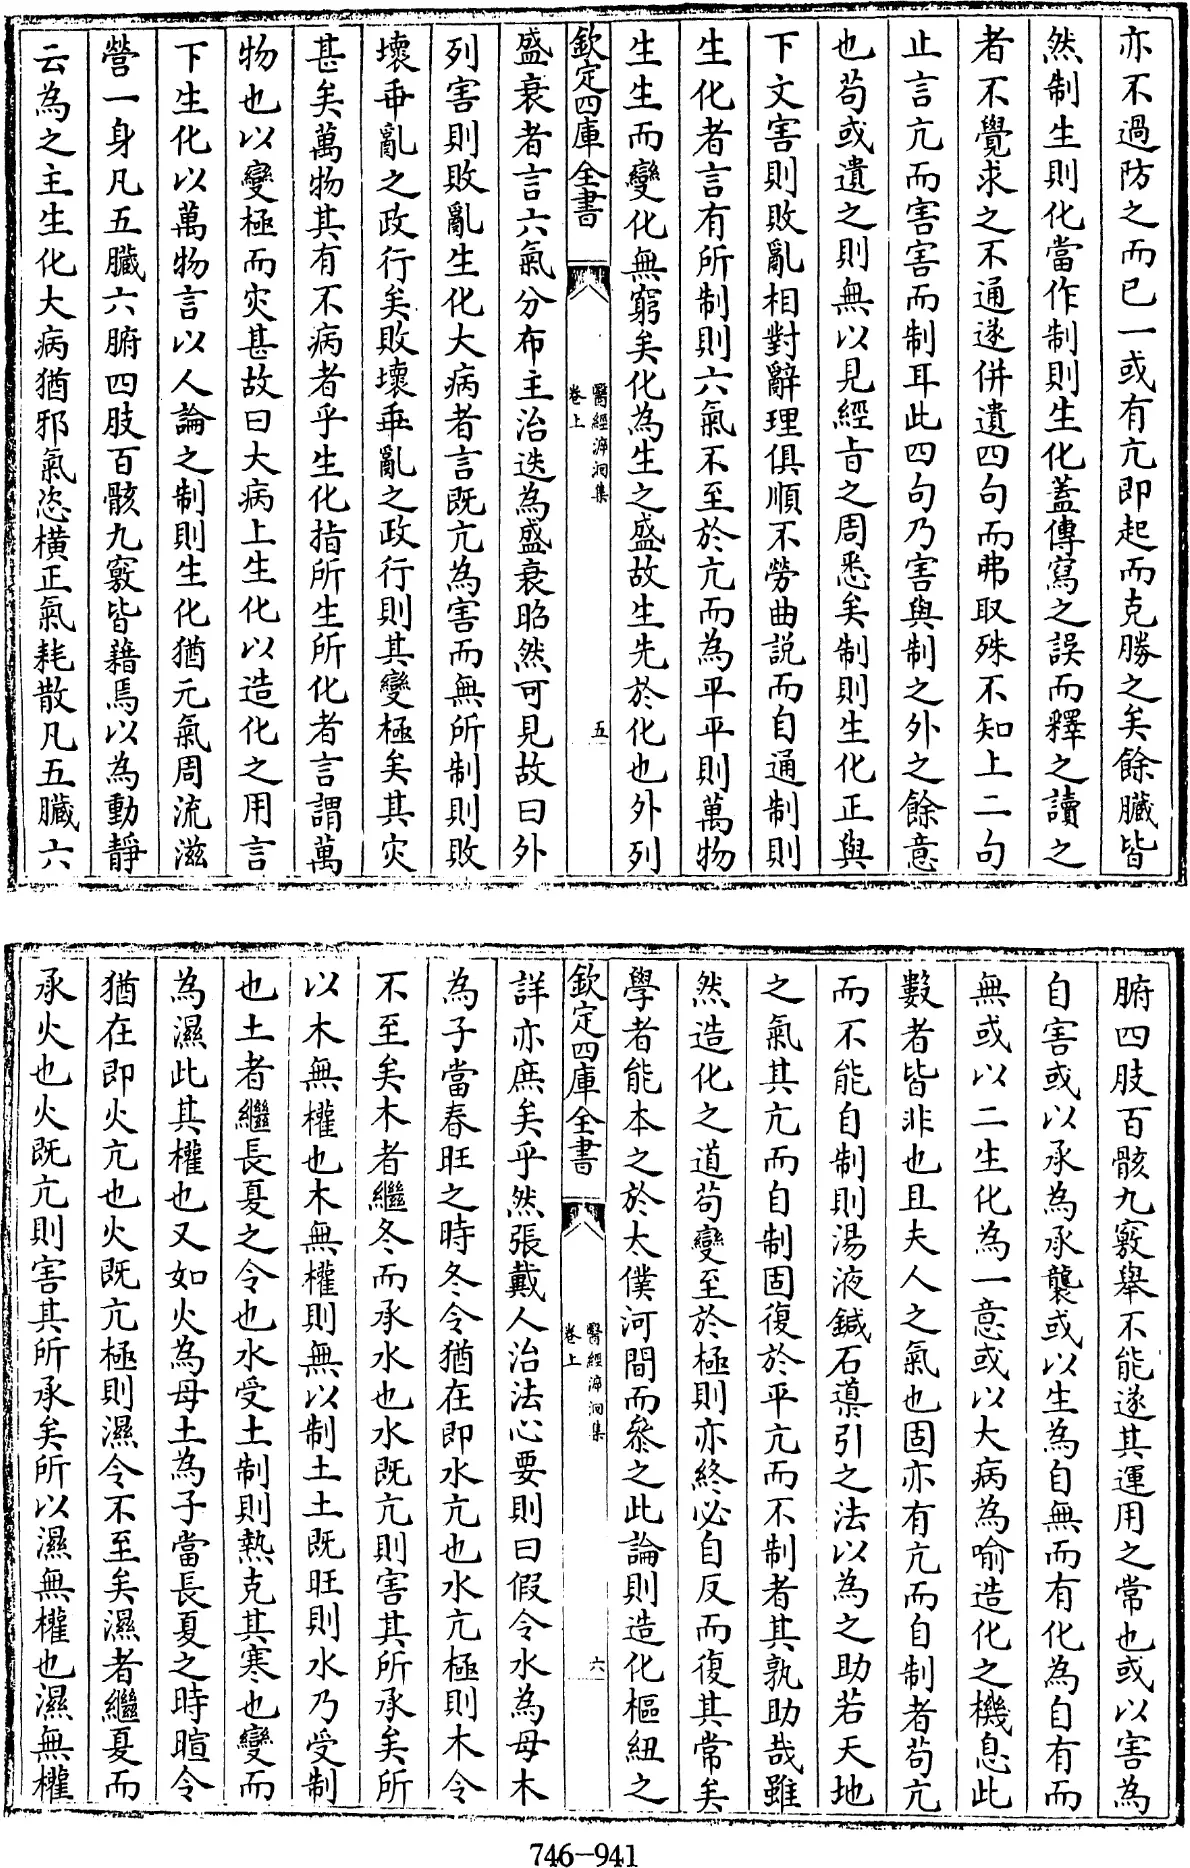 亦不過防之而已一或有亢即起而克勝之矣餘臟皆
然制生則化當作制則生化蓋傳寫之誤而釋之讀之
者不覺求之不通遂併遺四句而弗取殊不知上二句
止言亢而害害而制耳此四句乃害與制之外之餘意
也苟或遺之則無以見經旨之周悉矣制則生化正與
下文害則敗亂相對辭理俱順不勞曲説而自通制則
生化者言有所制則六氣不至於亢而為平平則萬物
生生而變化無窮矣化為生之盛故生先於化也外列
欽定四庫全書
醫經溯洄集
卷上
五
盛衰者言六氣分布主治迭為盛衰昭然可見故曰外
列害則敗亂生化大病者言既亢為害而無所制則敗
壞乖亂之政行矣敗壞乖亂之政行則其變極矣其灾
甚矣萬物其有不病者乎生化指所生所化者言謂萬
物也以變極而灾甚故曰大病上生化以造化之用言
下生化以萬物言以人論之制則生化猶元氣周流滋
營一身凡五臟六腑四肢百骸九竅皆藉焉以為動靜
云為之主生化大病猶邪氣恣橫正氣耗散凡五臟六
腑四肢百骸九竅舉不能遂其運用之常也或以害為
自害或以承為承襲或以生為自無而有化為自有而
無或以二生化為一意或以大病為喻造化之機息此
數者皆非也且夫人之氣也固亦有亢而自制者苟亢
而不能自制則湯液鍼石導引之法以為之助若天地
之氣其亢而自制固復於平亢而不制者其孰助哉雖
然造化之道苟變至於極則亦終必自反而復其常矣
學者能本之於太僕河間而叅之此論則造化樞紐之
欽定四庫全書
醫經溯洄集
卷上
六
詳亦庶矣乎然張戴人治法心要則曰假令水為母木
為子當春旺之時冬令猶在即水亢也水亢極則木令
不至矣木者繼冬而承水也水既亢則害其所承矣所
以木無權也木無權則無以制土土既旺則水乃受制
也土者繼長夏之令也水受土制則熱克其寒也變而
為濕此其權也又如火為母土為子當長夏之時暄令
猶在即火亢也火既亢極則濕令不至矣濕者繼夏而
承火也火既亢則害其所承矣所以濕無權也濕無權
746-941